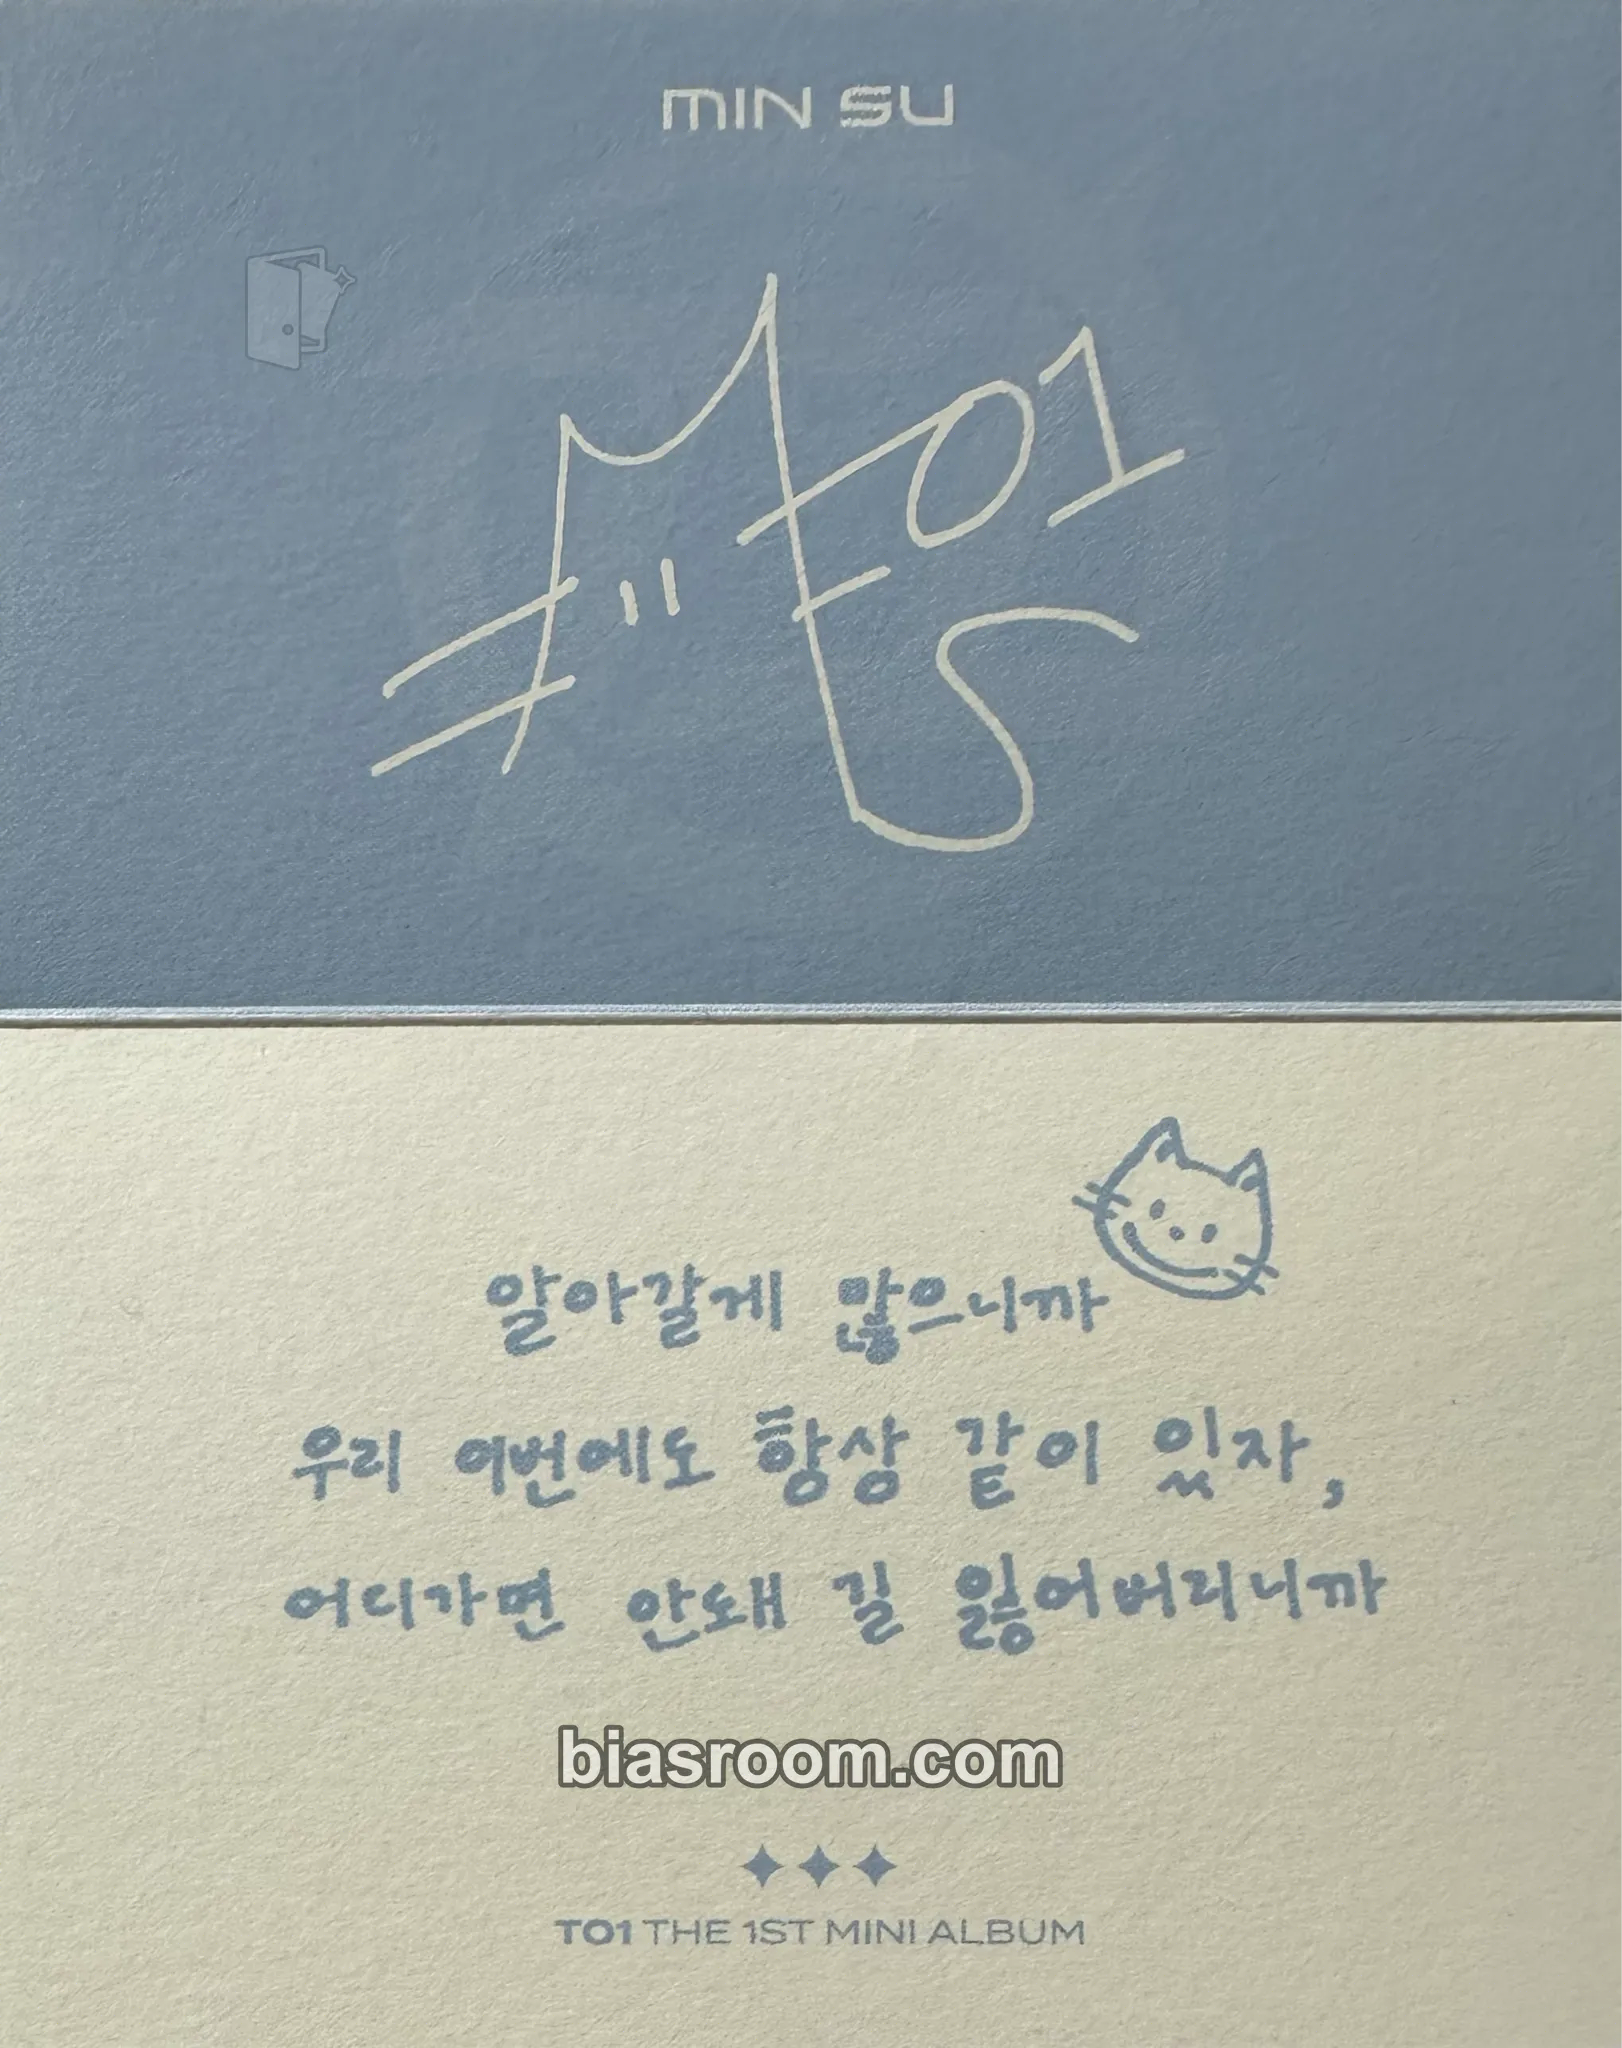 MIN SU
T01
S
알아갈게 많으니까
우리 이번에도 항상 같이 있자,
어디가면 안돼 길 잃어버리니까
biasroom.com
TO1 THE 1ST MINI ALBUM